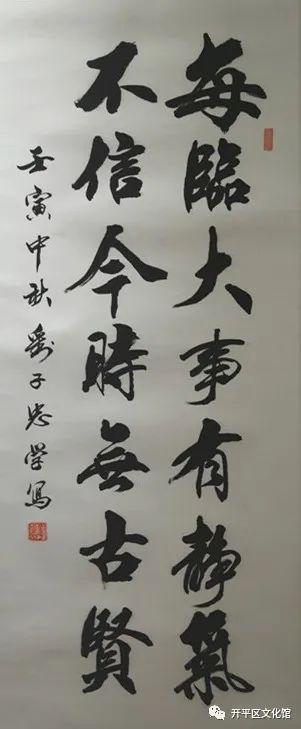 每臨大事有静氣
不信今時無古賢
壬寅中秋秀子忠学写
开平区文化馆